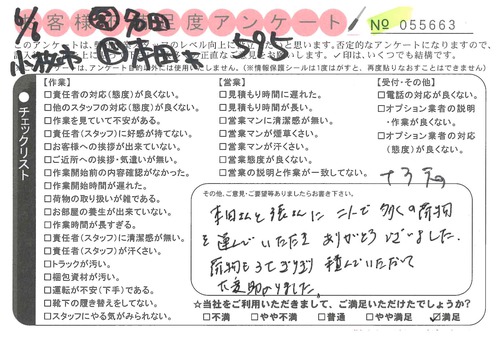 お客様満足度アンケート
№ 055663
6/1
小牧市
595
このアンケートは、
否定的なアンケートになりますので、
正直なご意見をお願いします。✓印は、いくつでも結構です。
アンケート目的以外には使用いたしません。(※情報保護シールは1度はがすと、再度貼りなおすことはできません)
チェックリスト
【作業】
□責任者の対応(態度)が良くない。
□他のスタッフの対応(態度)が良くない。
□作業を見ていて不安がある。
□責任者(スタッフ)に好感が持てない。
□お客様への挨拶が出来ていない。
□ご近所への挨拶・気遣いが無い。
□作業開始前の内容確認がなかった。
□作業開始時間が遅れた。
□荷物の取り扱いが雑である。
□お部屋の養生が出来ていない。
□作業時間が長すぎる。
□責任者(スタッフ)に清潔感が無い。
□責任者(スタッフ)が汗くさい。
□トラックが汚い。
□梱包資材が汚い。
□運転が不安(下手)である。
□靴下の履き替えをしてない。
□スタッフにやる気がみられない。
【営業】
□見積もり時間に遅れた。
□見積もり時間が長い。
□営業マンに清潔感が無い。
□営業マンが煙草くさい。
□営業マンが汗くさい。
□営業態度が良くない。
□営業の説明と作業が一致してない。
【受付・その他】
□電話の対応が良くない。
□オプション業者の説明・作業が良くない。
□オプション業者の対応(態度)が良くない。
その他、ご意見・ご要望等ありましたらお書き下さい。
本田さんと張さんに 二人で 多くの荷物
を運んでいただき ありがとうございました。
荷物も ぎりぎり 積んでいただいて
大変助かりました。
☆当社をご利用いただきまして、ご満足いただけたでしょうか?
□不満 □やや不満 □普通 □やや満足 ☑満足